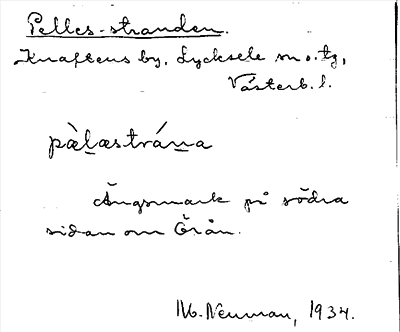 Pelles-stranden.
Knaftens by, Lycksele sn o. tg,
Västerb. l.
pæ̀lastrána
Ängsmark på södra
sidan om Örån.
M. Neuman, 1934.